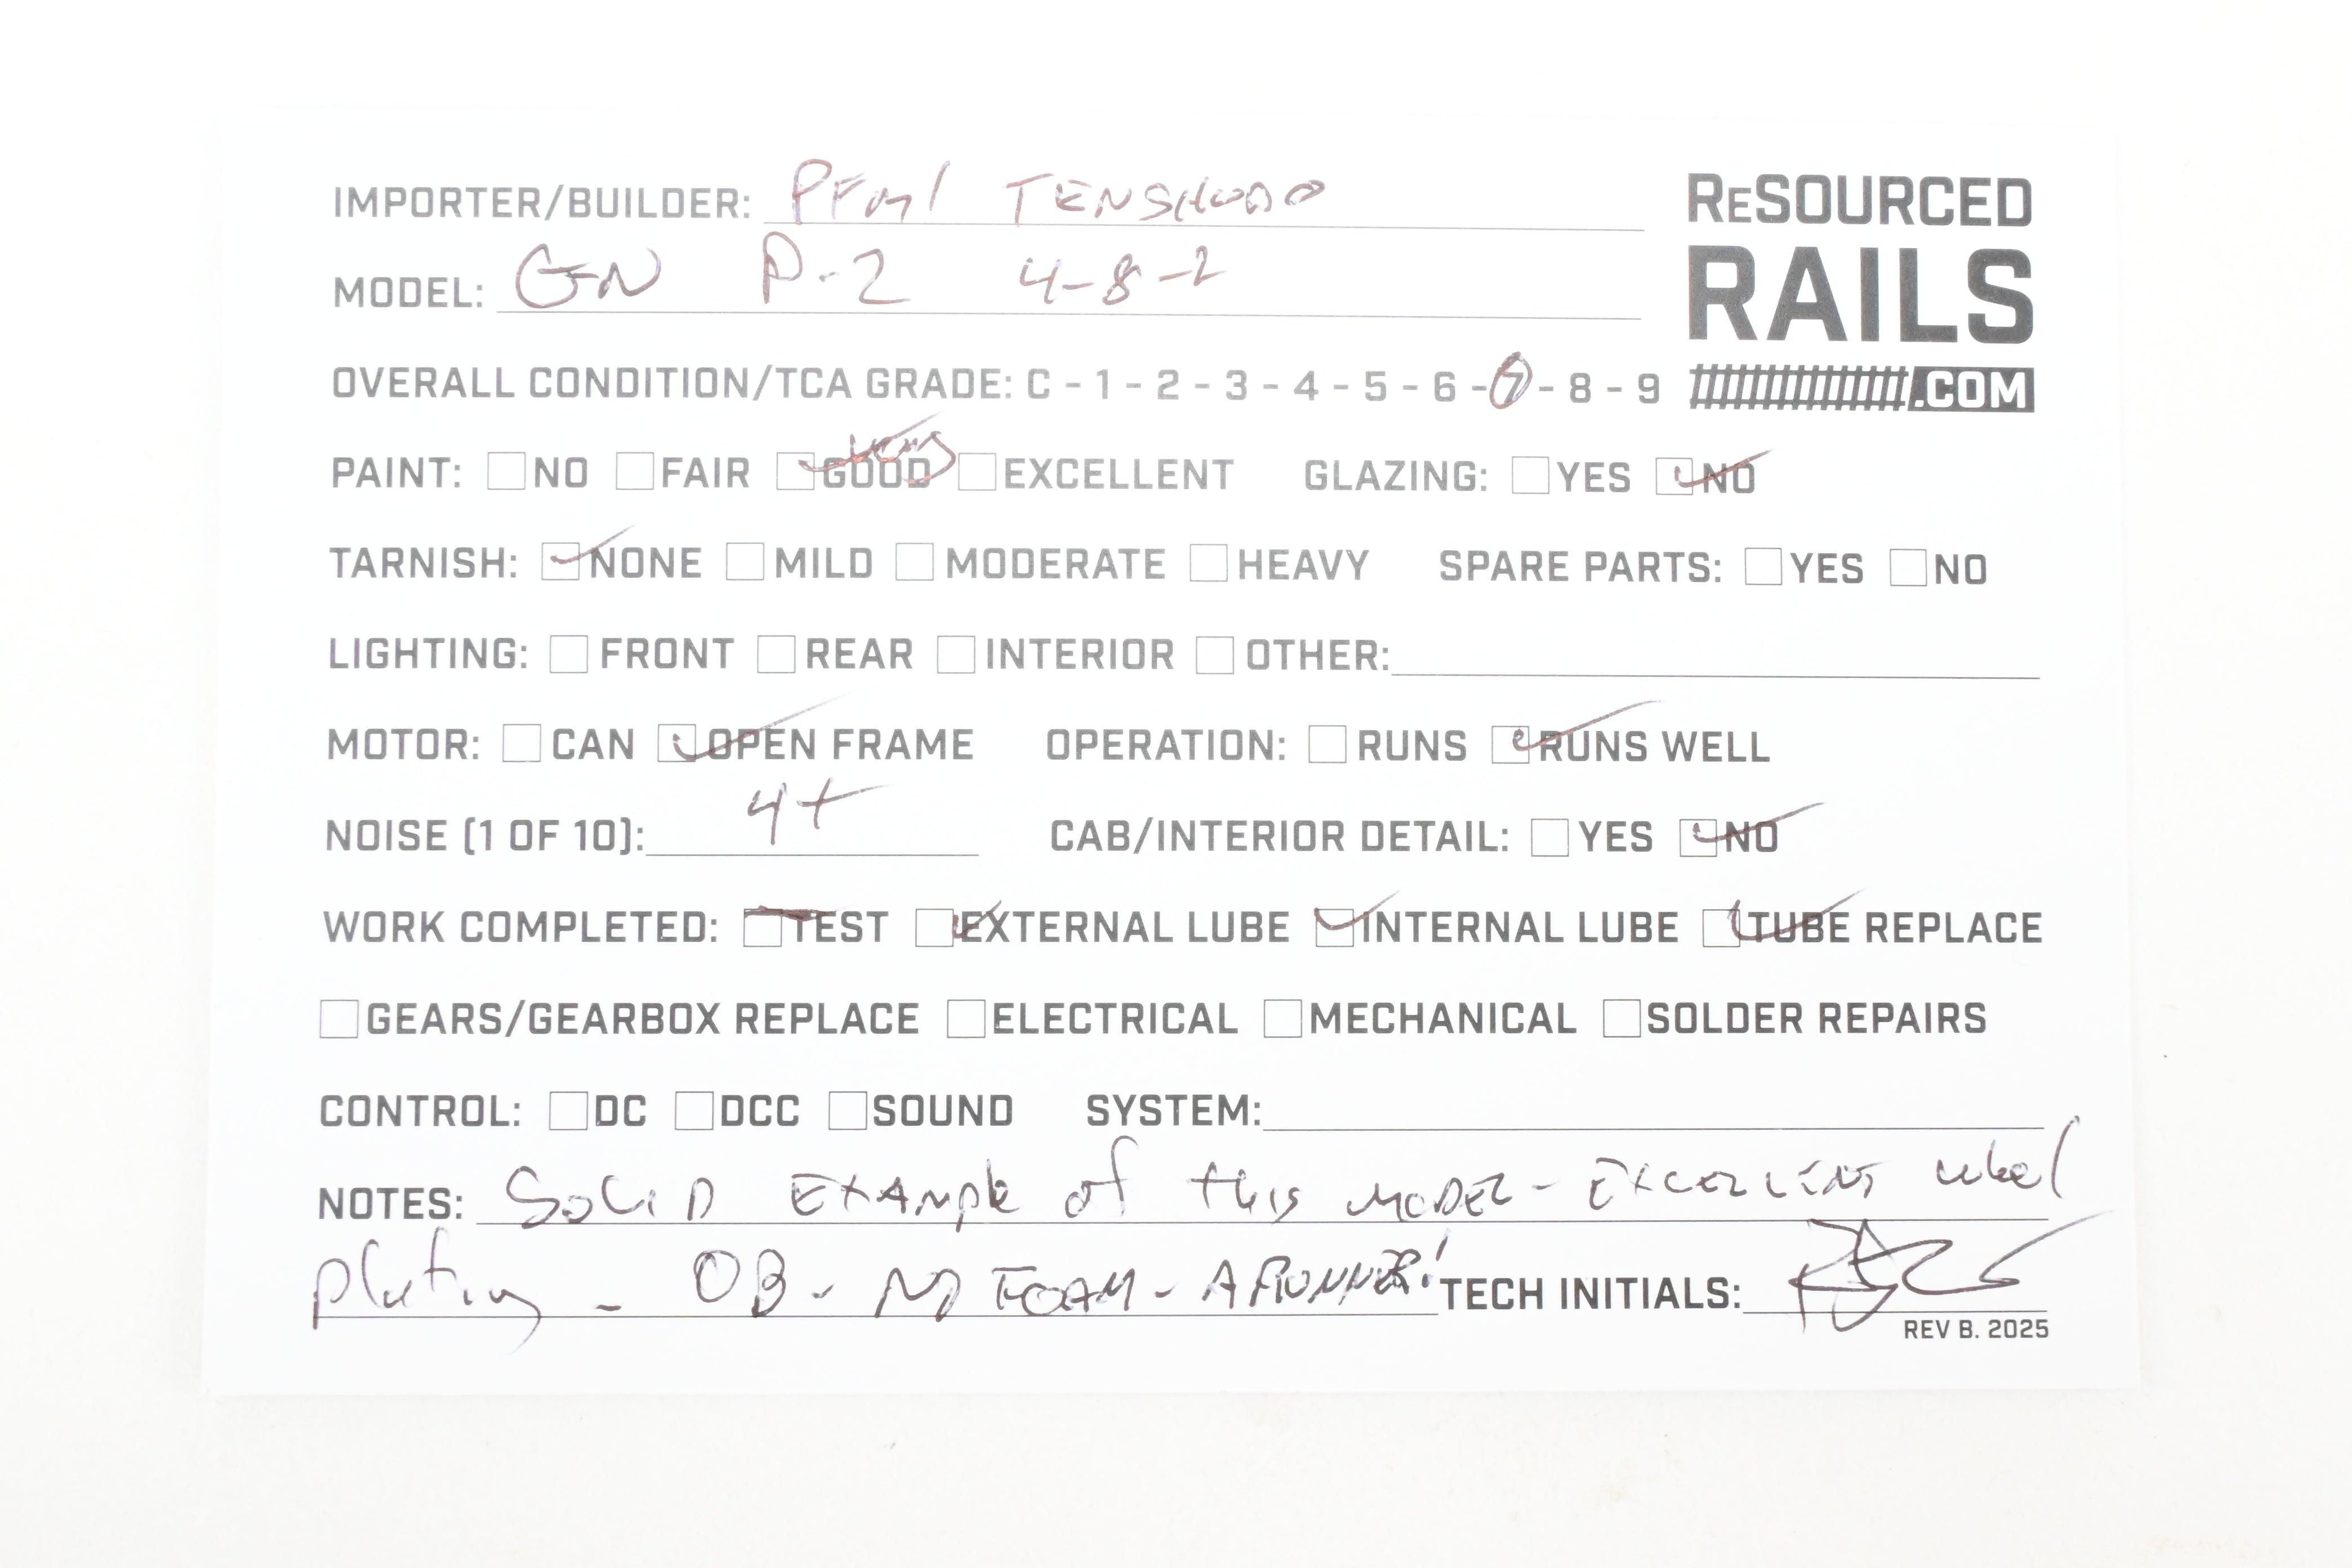 IMPORTER/BUILDER: PFM/ TENSHODO
RESOURCED
RAILS
.COM
MODEL: GN P-2 4-8-2
OVERALL CONDITION/TCA GRADE: C - 1 - 2 - 3 - 4 - 5 - 6 - 7 - 8 - 9
PAINT: NO FAIR GOOD EXCELLENT GLAZING: YES NO
TARNISH: NONE MILD MODERATE HEAVY SPARE PARTS: YES NO
LIGHTING: FRONT REAR INTERIOR OTHER:
MOTOR: CAN OPEN FRAME OPERATION: RUNS RUNS WELL
NOISE (1 OF 10): 4+ CAB/INTERIOR DETAIL: YES NO
WORK COMPLETED: TEST EXTERNAL LUBE INTERNAL LUBE TUBE REPLACE
GEARS/GEARBOX REPLACE ELECTRICAL MECHANICAL SOLDER REPAIRS
CONTROL: DC DCC SOUND SYSTEM:
NOTES: SOLID EXAMPLE of this MODEL - EXCELLENT wheel
plating - OB - NO FOAM - A RUNNER! TECH INITIALS:
REV B. 2025